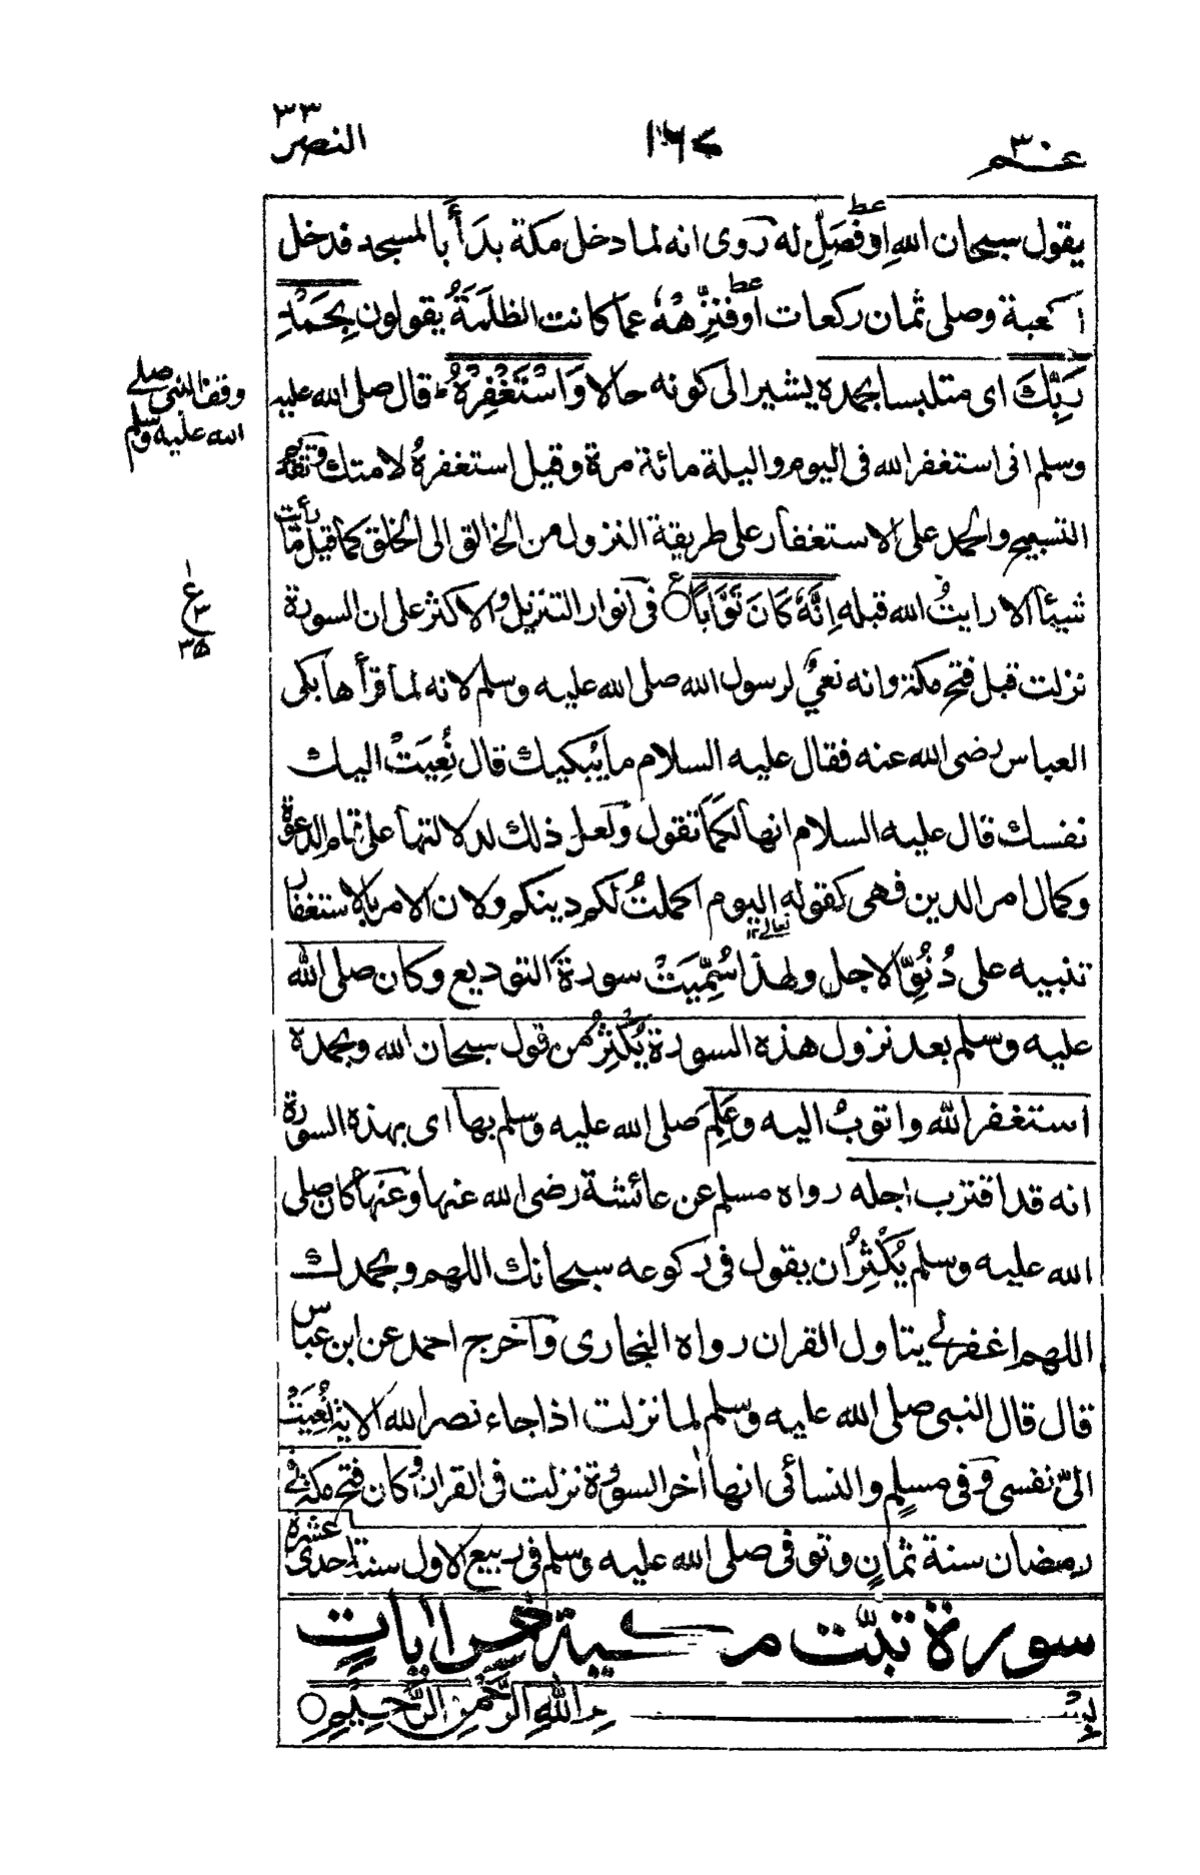 النصر ٣٣
١٦٧
عم ٣٠
يقول سبحان اللهِ اوفَصَلِّ له رُوى انه لما دخل مكة بدَأ بالمسجد فدخل
الكعبة وصلى ثمان ركعات اوفنزِّهْهُ عما كانت الظلَمَةُ يقولون بِحَمْدِ
رَبِّكَ اى متلبسا بحمده يشير الى كونه حالا وَاسْتَغْفِرْهُ قال صلى الله عليه
وسلم انى استغفر الله فى اليوم والليلة مائة مرة وقيل استغفرهُ لامتك وتقديم
التسبيح والحمد على الاستغفار على طريقة النزول من الخالق الى الخلق كما قيل ما رأيت
شيئا الا رايتُ الله قبله اِنَّهٗ كَانَ تَوَّابًا فى انوار التنزيل والاكثر على ان السورة
نزلت قبل فتح مكة وانه نعىٌ لرسول الله صلى الله عليه وسلم لانه لما قرأها بكى
العباس رضى الله عنه فقال عليه السلام ما يُبكيك قال نُعِيَتْ اليك
نفسك قال عليه السلام انها لَكَمَا تقول ولعل ذلك لدلالتها على تمام الدعوة
وكمال امر الدين فهى كقوله تعالى ١٢ اليوم اكملتُ لكم دينكم ولان الامر بالاستغفار
تنبيه على دُنُوِّ الاجل ولهذا سُمِّيَتْ سورة التوديع وكان صلى الله
عليه وسلم بعد نزول هذه السورة يُكْثِرُ من قول سبحان الله وبحمده
استغفر الله واتوبُ اليه وعَلِمَ صلى الله عليه وسلم بها اى بهذه السورة
انه قد اقترب اجله رواه مسلم عن عائشة رضى الله عنها وعنها كان صلى
الله عليه وسلم يُكْثِرُ ان يقول فى ركوعه سبحانك اللهم وبحمدك
اللهم اغفرلى يتاول القران رواه البخارى واخرج احمد عن ابن عباس
قال قال النبى صلى الله عليه وسلم لما نزلت اذا جاء نصر الله الاية نُعِيَتْ
الىّ نفسى وفى مسلمٍ والنسائى انها اٰخر السورة نزلت فى القران وكان فتح مكة فى
رمضان سنة ثمانٍ وتوفى صلى الله عليه وسلم فى ربيع الاول سنة احدى عشرة
سورة تبّت مكية خمس اٰيات
بِسْمِ اللهِ الرَّحْمٰنِ الرَّحِيْمِ
وقف النبى صلى
الله عليه وسلم
ع
٣
٣٥